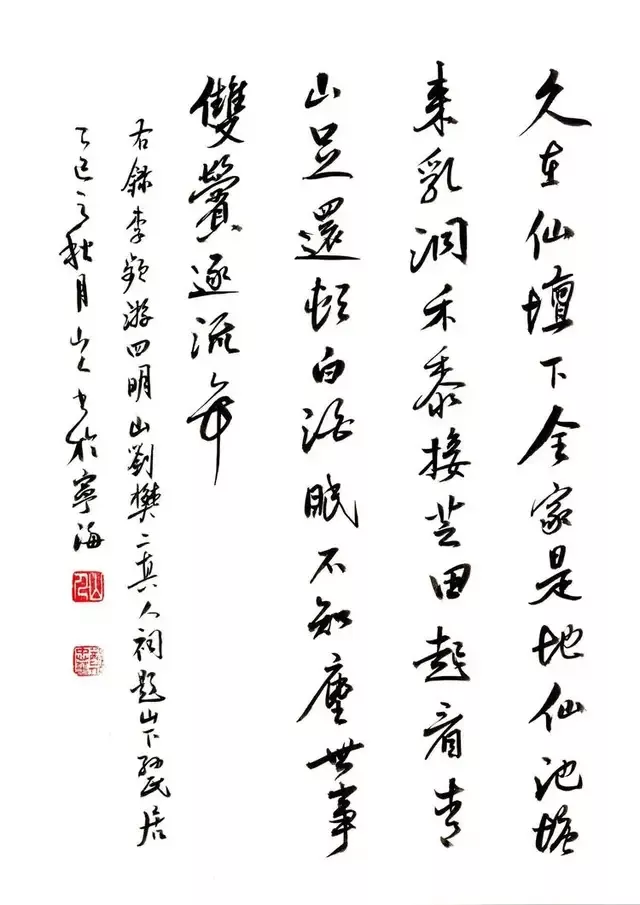 久在仙壇下全家是地仙池塘
来乳洞禾黍接芝田起看青
山足還傾白酒眠不知塵世事
雙鬢逐流年
右錄李頻游四明山劉樊二真人祠題山下孫氏居
乙巳之秋月山人書於寧海